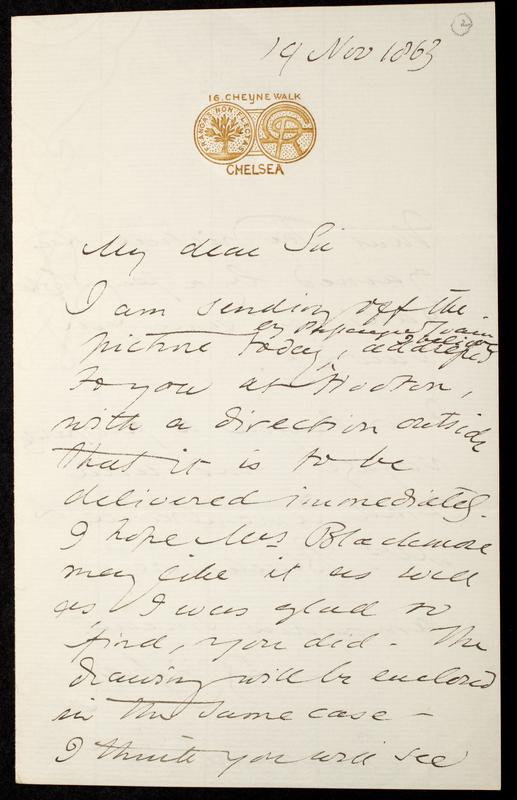 2
19 Nov 1863
16. CHEYNE WALK
FRANGAS NON FLECTAS
CHELSEA
My dear Sir
I am sending off the
by Passenger Train
I believe
picture today, addressed
to you at Hooton,
with a direction outside
that it is to be
delivered immediately.
I hope Mrs Blackmore
may like it as well
as I was glad to
find, you did - The
drawing will be enclosed
in the same case -
I think you will see